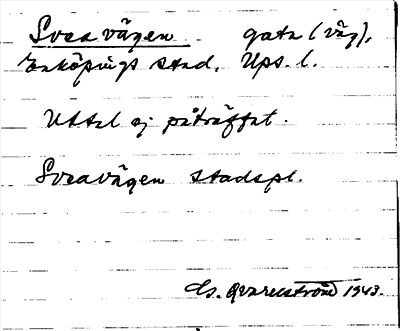 Sveavägen gata (väg),
Enköpings stad, Ups. l.
Uttal ej påträffat.
Sveavägen stadspl.
Cs. Qvarnström 1943.